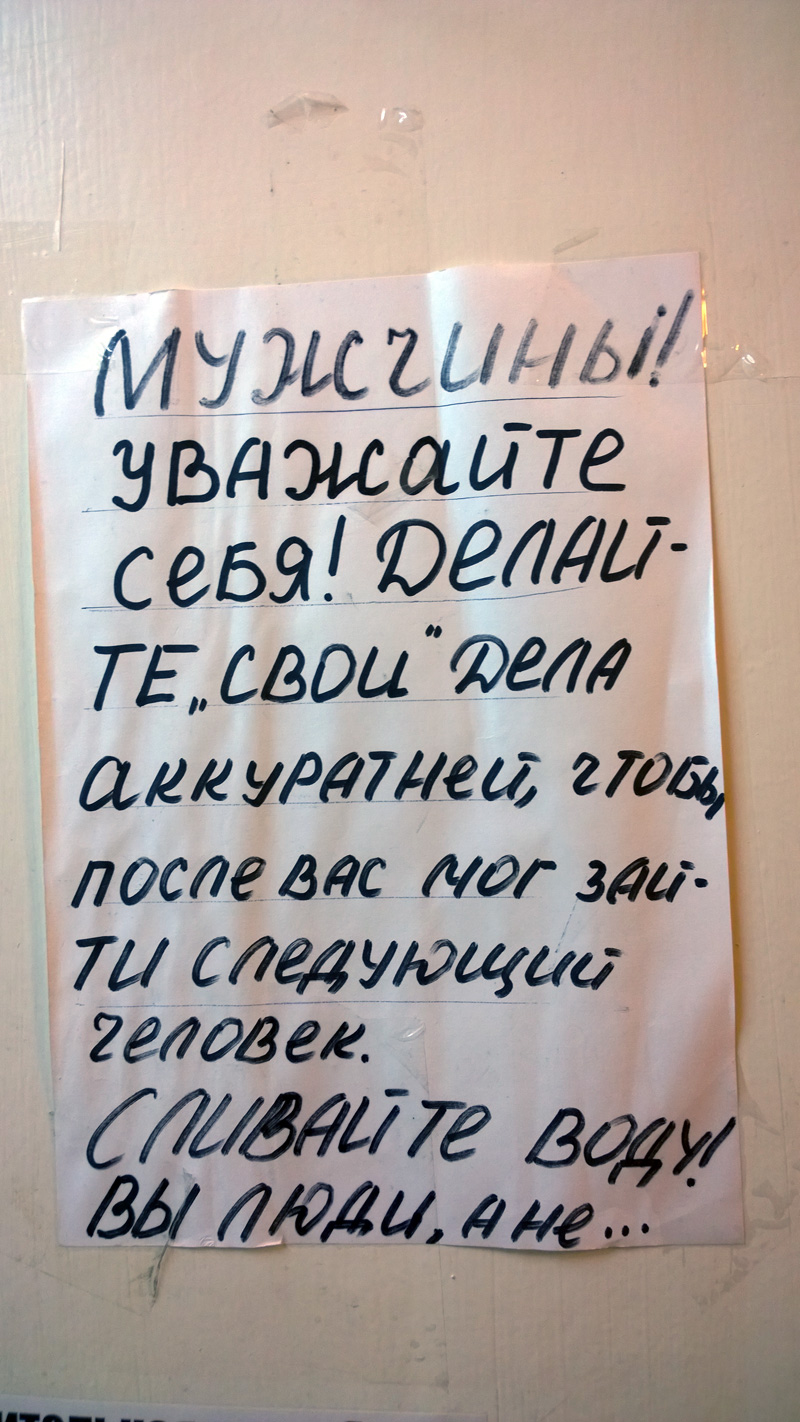 Мужчины!
уважайте
себя! Делай-
те „свои" дела
аккуратней, чтобы,
после вас мог зай-
ти следующий
человек.
Сливайте воду!
Вы люди, а не...